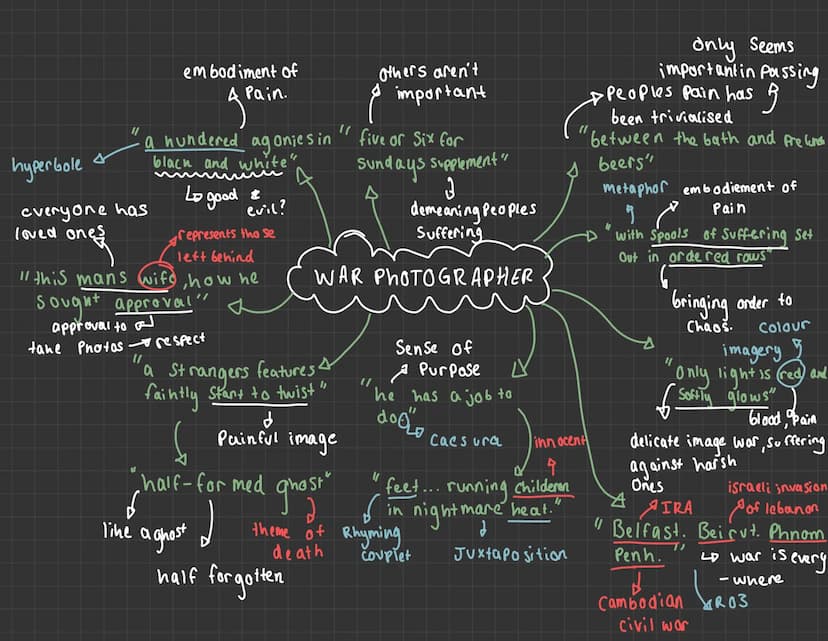 embodiment of
Pain.
"a hundered agonies in
black and white"
hyperbole
good &
evil?
others aren't
important
"five or six for
sundays supplement"
demeaning peoples
suffering
only seems
important in passing
peoples pain has
been trivialised
"between the bath and pre lunch
beers"
metaphor
embodiement of
pain
"with spools of suffering set
out in ordered rows"
bringing order to
chaos.
everyone has
loved ones
represents those
left behind
"this mans wife, how he
sought approval"
approval to
take photos → respect
WAR PHOTOGRAPHER
"a strangers features
faintly start to twist"
Painful image
"half-formed ghost"
like a ghost
half forgotten
theme of
death
Sense of
Purpose
"he has a job to
do"
caesura
innocent
"feet... running childeren
in nightmare heat."
Rhyming
couplet
Juxtaposition
colour
imagery
"only light is red and
softly glows"
blood, pain
delicate image war, suffering
against harsh
ones
IRA
israeli invasion
of lebanon
"Belfast. Beirut. Phnom
Penh."
war is every
-where
RO3
Cambodian
civil war